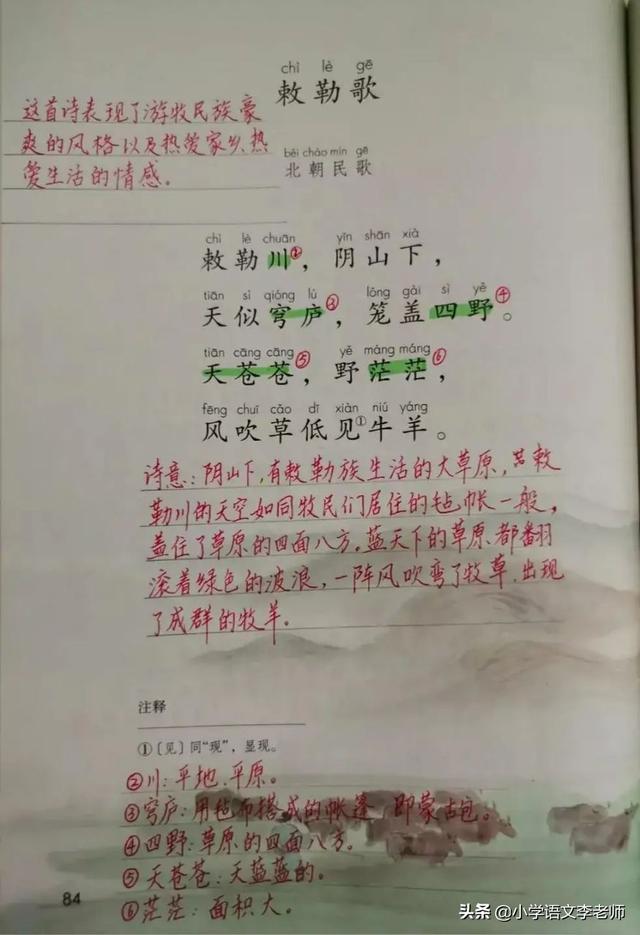 chì lè gē
敕勒歌
这首诗表现了游牧民族豪
爽的风格以及热爱家乡、热
爱生活的情感。
běi cháo mín gē
北朝民歌
chì lè chuān yīn shān xià
敕勒川②，阴山下，
tiān sì qióng lú lǒng gài sì yě
天似穹庐③，笼盖四野④。
tiān cāng cāng yě máng máng
天苍苍⑤，野茫茫⑥，
fēng chuī cǎo dī xiàn niú yáng
风吹草低见①牛羊。
诗意：阴山下，有敕勒族生活的大草原，敕
勒川的天空如同牧民们居住的毡帐一般，
盖住了草原的四面八方。蓝天下的草原、都翻
滚着绿色的波浪，一阵风吹弯了牧草，出现
了成群的牧羊。
注释
①〔见〕同“现”，显现。
②川：平地、平原。
③穹庐：用毡布搭成的帐篷，即蒙古包。
④四野：草原的四面八方。
⑤天苍苍：天蓝蓝的。
⑥茫茫：面积大。
84
头条 @小学语文李老师